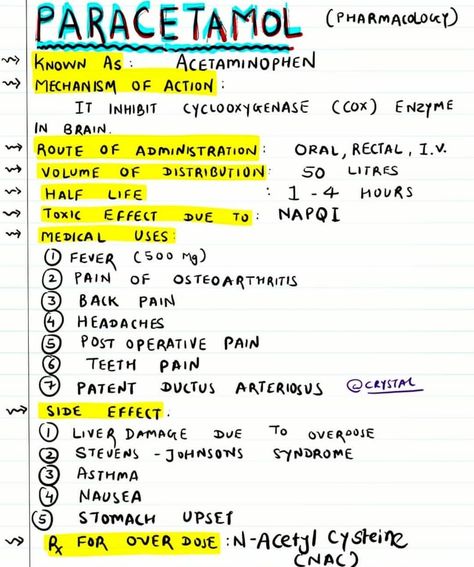 PARACETAMOL (PHARMACOLOGY)
KNOWN AS: ACETAMINOPHEN
MECHANISM OF ACTION:
IT INHIBIT CYCLOOXYGENASE (COX) ENZYME
IN BRAIN.
ROUTE OF ADMINISTRATION: ORAL, RECTAL, I.V.
VOLUME OF DISTRIBUTION: 50 LITRES
HALF LIFE : 1-4 HOURS
TOXIC EFFECT DUE TO: NAPQI
MEDICAL USES:
① FEVER (500 Mg)
② PAIN OF OSTEOARTHRITIS
③ BACK PAIN
④ HEADACHES
⑤ POST OPERATIVE PAIN
⑥ TEETH PAIN
⑦ PATENT DUCTUS ARTERIOSUS @CRYSTAL
SIDE EFFECT.
① LIVER DAMAGE DUE TO OVERDOSE
② STEVENS-JOHNSONS SYNDROME
③ ASTHMA
④ NAUSEA
⑤ STOMACH UPSET
Rx FOR OVER DOSE: N-Acetyl Cysteine
(NAC)